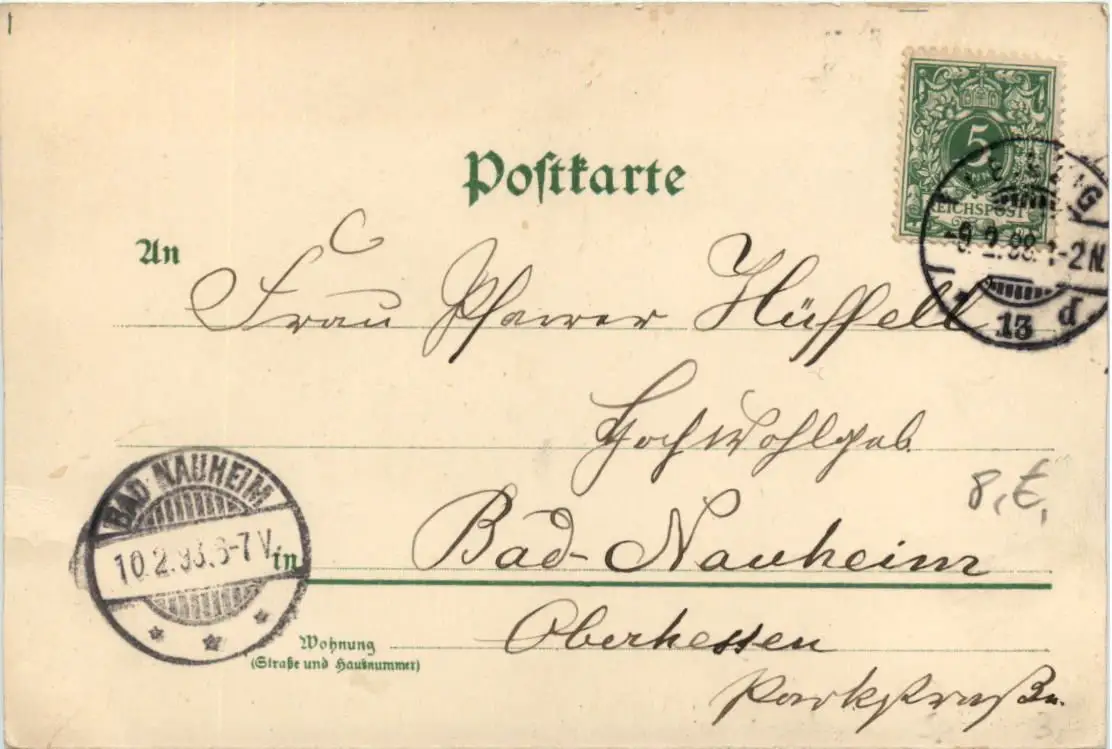 Postkarte
5
REICHSPOST
LEIPZIG
-9.2.98.1-2N.
13 d
An
Frau Pfarrer Hüffell
Hochwohlgeb.
8,€,
BAD NAUHEIM
10.2.98.6-7V.
in Bad-Nauheim
Wohnung Oberhessen
(Straße und Hausnummer)
Parkstraße